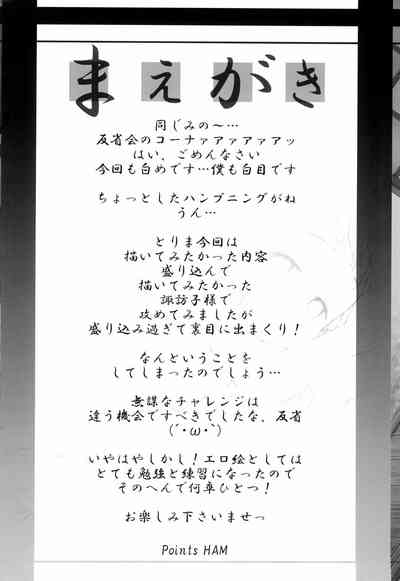 まえがき
同じみの〜…
反省会のコーナァアァアァアッ
はい、ごめんなさい
今回も白めです…僕も白目です
ちょっとしたハンプニングがね
うん…
とりま今回は
描いてみたかった内容
盛り込んで
描いてみたかった
諏訪子様で
攻めてみましたが
盛り込み過ぎて裏目に出まくり！
なんということを
してしまったのでしょう…
無謀なチャレンジは
違う機会ですべきでしたな、反省
(´･ω･`)
いやはやしかし！エロ絵としては
とても勉強と練習になったので
そのへんで何卒ひとつ！
お楽しみ下さいませっ
Points HAM